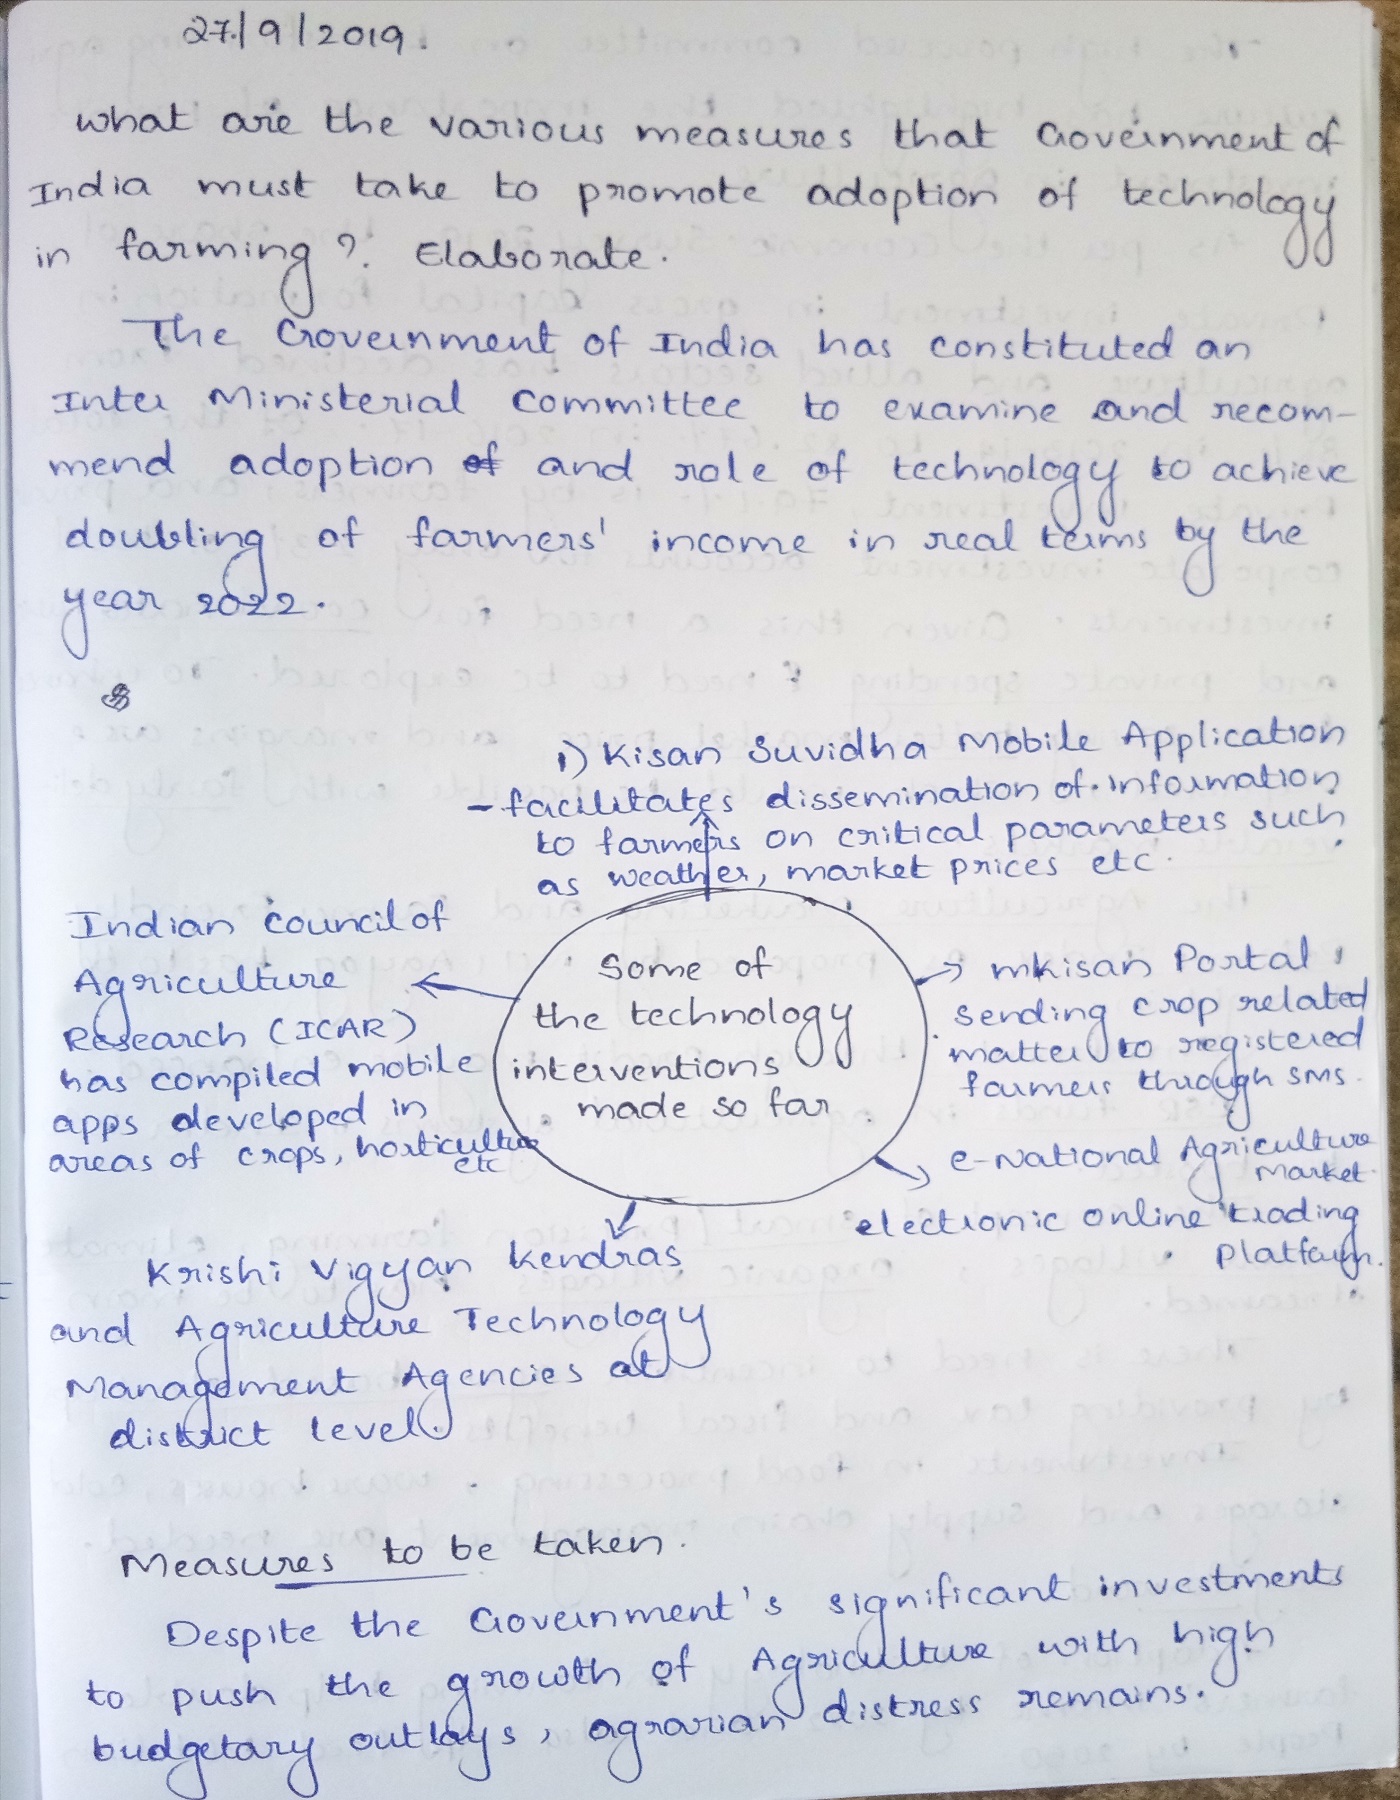 27/9/2019.
what are the various measures that Government of
India must take to promote adoption of technology
in farming? Elaborate.
The Government of India has constituted an
Inter Ministerial Committee to examine and recom-
mend adoption of and role of technology to achieve
doubling of farmers' income in real terms by the
year 2022.
1) Kisan Suvidha Mobile Application
- facilitates dissemination of information
to farmers on critical parameters such
as weather, market prices etc.
Indian Council of
Agriculture
Research (ICAR)
has compiled mobile
apps developed in
areas of crops, horticulture
etc
Some of
the technology
interventions
made so far
mkisan Portal
sending crop related
matter to registered
farmers through SMS.
e-National Agriculture
Market
electronic online trading
Platform.
Krishi Vigyan Kendras
and Agriculture Technology
Management Agencies at
district level.
Measures to be taken.
Despite the Government's significant investments
to push the growth of Agriculture with high
budgetary outlays, agrarian distress remains.